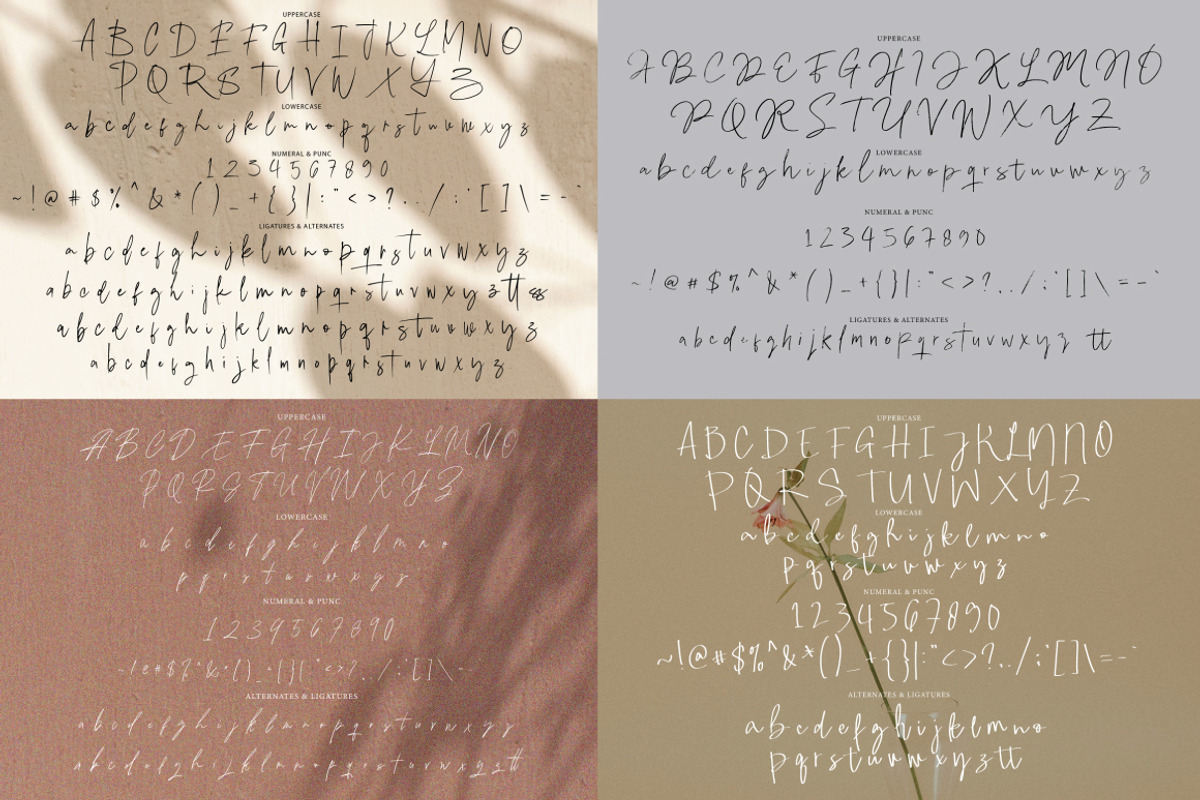 UPPERCASE
A B C D E F G H I J K L M N O
P Q R S T U V W X Y Z
LOWERCASE
a b c d e f g h i j k l m n o p q r s t u v w x y z
NUMERAL & PUNC
1 2 3 4 5 6 7 8 9 0
~ ! @ # $ % ^ & * ( ) _ + { } | : " < > ? . . / ; ' [ ] \ = - `
LIGATURES & ALTERNATES
a b c d e f g h i j k l m n o p q r s t u v w x y z
a b c d e f g h i j k l m n o p q r s t u v w x y z tt ss
a b c d e f g h i j k l m n o p q r s t u v w x y z
a b c d e f g h i j k l m n o p q r s t u v w x y z
UPPERCASE
A B C D E F G H I J K L M N O
P Q R S T U V W X Y Z
LOWERCASE
a b c d e f g h i j k l m n o p q r s t u v w x y z
NUMERAL & PUNC
1 2 3 4 5 6 7 8 9 0
~ ! @ # $ % ^ & * ( ) _ + { } | : " < > ? . . / ; ' [ ] \ = - `
LIGATURES & ALTERNATES
a b c d e f g h i j k l m n o p q r s t u v w x y z tt
UPPERCASE
A B C D E F G H I J K L M N O
P Q R S T U V W X Y Z
LOWERCASE
a b c d e f g h i j k l m n o
p q r s t u v w x y z
NUMERAL & PUNC
1 2 3 4 5 6 7 8 9 0
~ ! @ # $ % ^ & * ( ) _ + { } | : " < > ? . . / ; ' [ ] \ = - `
ALTERNATES & LIGATURES
a b c d e f g h i j k l m n o p q r s t u v w x y z
a b c d e f g h i j k l m n o p q r s t u v w x y z tt
UPPERCASE
A B C D E F G H I J K L M N O
P Q R S T U V W X Y Z
LOWERCASE
a b c d e f g h i j k l m n o
p q r s t u v w x y z
NUMERAL & PUNC
1 2 3 4 5 6 7 8 9 0
~ ! @ # $ % ^ & * ( ) _ + { } | : " < > ? . . / ; ' [ ] \ = - `
ALTERNATES & LIGATURES
a b c d e f g h i j k l m n o
p q r s t u v w x y z tt